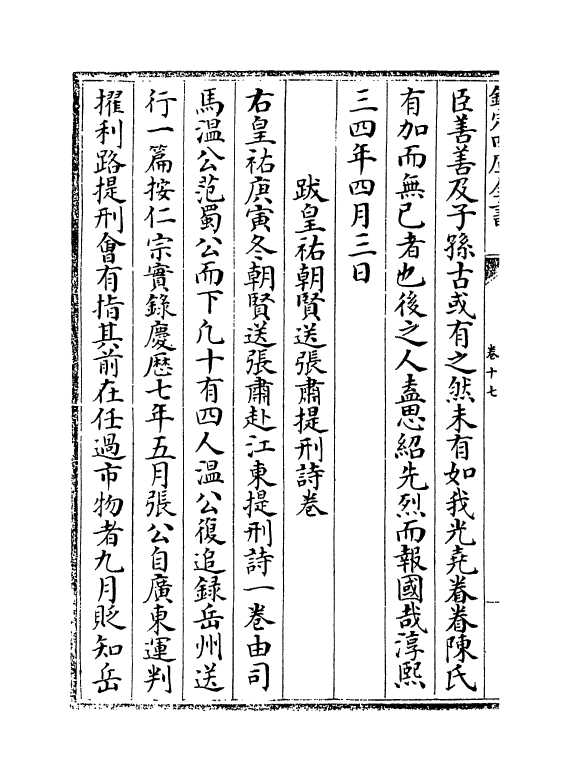 欽定四庫全書
卷十七
臣善善及子孫古或有之然未有如我光堯眷眷陳氏
有加而無已者也後之人盍思紹先烈而報國哉淳熙
三四年四月三日
跋皇祐朝賢送張肅提刑詩卷
右皇祐庚寅冬朝賢送張肅赴江東提刑詩一卷由司
馬溫公范蜀公而下凢十有四人溫公復追錄岳州送
行一篇按仁宗實錄慶厯七年五月張公自廣東運判
擢利路提刑會有指其前在任過市物者九月貶知岳